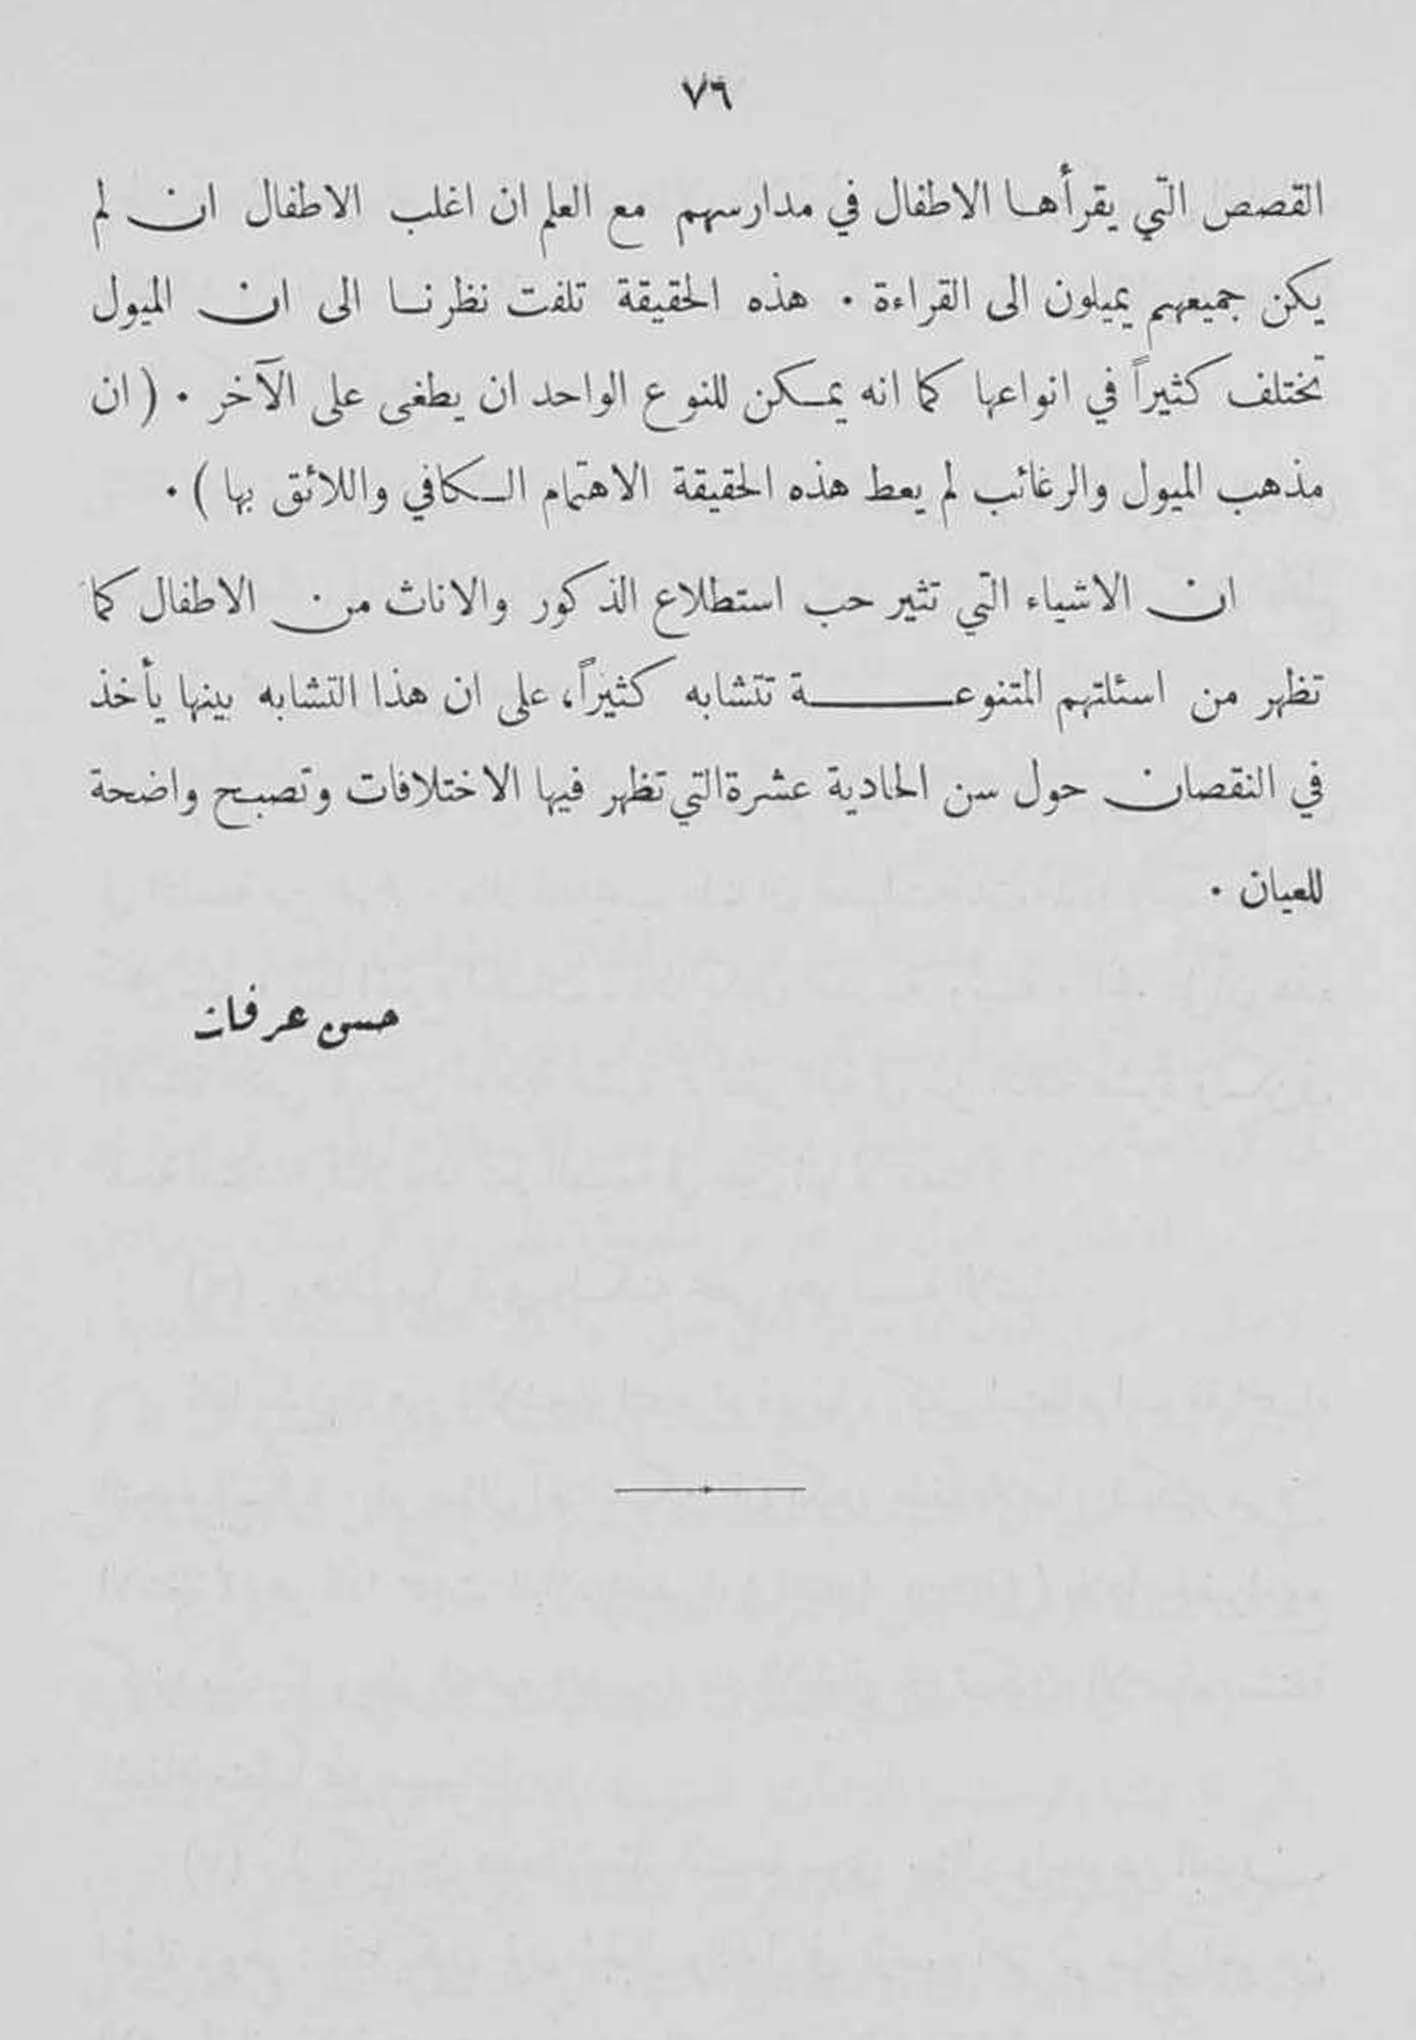 ٧٦
القصص التي يقرأها الاطفال في مدارسهم مع العلم ان اغلب الاطفال ان لم
يكن جميعهم يميلون الى القراءة . هذه الحقيقة تلفت نظرنا الى ان الميول
تختلف كثيراً في انواعها كما انه يمكن للنوع الواحد ان يطغى على الآخر . ( ان
مذهب الميول والرغائب لم يعط هذه الحقيقة الاهتمام الكافي واللائق بها ) .
ان الاشياء التي تثير حب استطلاع الذكور والاناث من الاطفال كما
تظهر من اسئلتهم المتنوعة تتشابه كثيراً، على ان هذا التشابه بينها يأخذ
في النقصان حول سن الحادية عشرة التي تظهر فيها الاختلافات وتصبح واضحة
للعيان .
حسن عرفات